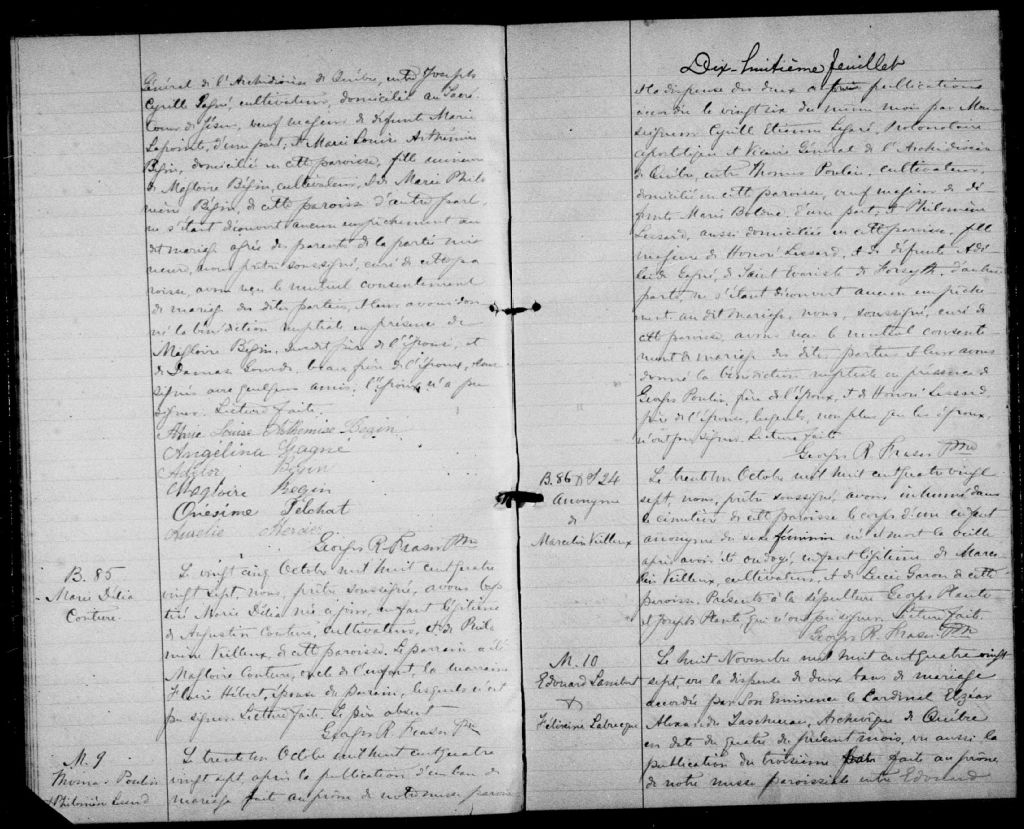 Général de l'Archidiocèse de Québec, entre Joseph
Cyrille Gagné, cultivateur, domicilié au Sacré
Cœur de Jésus, veuf majeur de défunte Marie
Lapointe, d'une part; et Marie Louise Arthémise
Bégin, domiciliée en cette paroisse, fille mineure
de Magloire Bégin, cultivateur, et de Marie Philo-
mène Bégin, de cette paroisse d'autre part,
ne s'étant découvert aucun empêchement au
dit mariage après des parents de la partie mi-
neure, nous prêtre soussigné, curé de cette pa-
roisse, avons reçu le mutuel consentement
de mariage des dites parties, et leur avons don-
né la bénédiction nuptiale en présence de
Magloire Bégin, susdit père de l'épouse, et
de Damase, beau père de l'époux, sous-
signés avec quelques amis; l'époux n'a pu
signer. Lecture faite.
Marie Louise Arthemise Begin
Angélina Gagné
Begin
Magloire Begin
Onésime Pelchat
Aurelie Mercier
Georges R. Fraser Ptre
B. 85
Marie Délia
Couture.
Le vingt cinq Octobre mil huit cent quatre
vingt sept, nous, prêtre soussigné, avons bap-
tisé Marie Délia née, enfant légitime
de Augustin Couture, cultivateur, et de Philo-
mène Veilleux, de cette paroisse. Le parrain a été
Magloire Couture, oncle de l'enfant, la marraine
Hébert, épouse du parrain, lesquels n'ont
pu signer. Lecture faite. Le père absent
Georges R. Fraser Ptre
M. 9
Thomas Poulin
&
Philomène Lessard
Le trente un Octobre mil huit cent quatre
vingt sept, après la publication d'un ban de
mariage fait au prône de notre messe parois-
Dix-huitième feuillet
et la dispense des deux publications
accordée le vingt six du même mois par Mon-
seigneur Cyrille Etienne Legaré, Protonotaire
apostolique et Vicaire Général de l'Archidiocèse
de Québec, entre Thomas Poulin, cultivateur,
domicilié en cette paroisse, veuf majeur de dé-
funte Marie Bolduc, d'une part; et Philomène
Lessard, aussi domiciliée en cette paroisse, fille
majeure de Honoré Lessard, et de défunte Adé-
laïde Gagné, de Saint Evariste de Forsyth, d'autre
part, ne s'étant découvert aucun empêche-
ment au dit mariage, nous, soussigné, curé de
cette paroisse, avons reçu le mutuel consente-
ment de mariage des dites parties et leur avons
donné la bénédiction nuptiale en présence de
Georges Poulin, père de l'époux, et de Honoré Lessard
père de l'épouse, lesquels, non plus que les époux,
n'ont pu signer. Lecture faite.
Georges R. Fraser Ptre
B. 86 & S. 24
Anonyme
de
Marcelin Veilleux
Le trente un Octobre mil huit cent quatre vingt
sept, nous, prêtre soussigné, avons inhumé dans
le cimetière de cette paroisse le corps d'un enfant
anonyme du sexe féminin né et mort la veille
après avoir été ondoyé, enfant légitime de Marce-
lin Veilleux, cultivateur, et de Lucie Garon de cette
paroisse. Présents à la sépulture Georges Plante
et Joseph Plante qui n'ont pu signer. Lecture faite.
Georges R. Fraser Ptre
M. 10
Edouard Lambert
&
Labrecque
Le huit Novembre mil huit cent quatre vingt
sept, vu la dispense de deux bans de mariage
accordée par Son Eminence le Cardinal Elzéar
Alexandre Taschereau, Archevêque de Québec
en date du quatre du présent mois, vu aussi la
publication du troisième faite au prône
de notre messe paroissiale entre Edouard